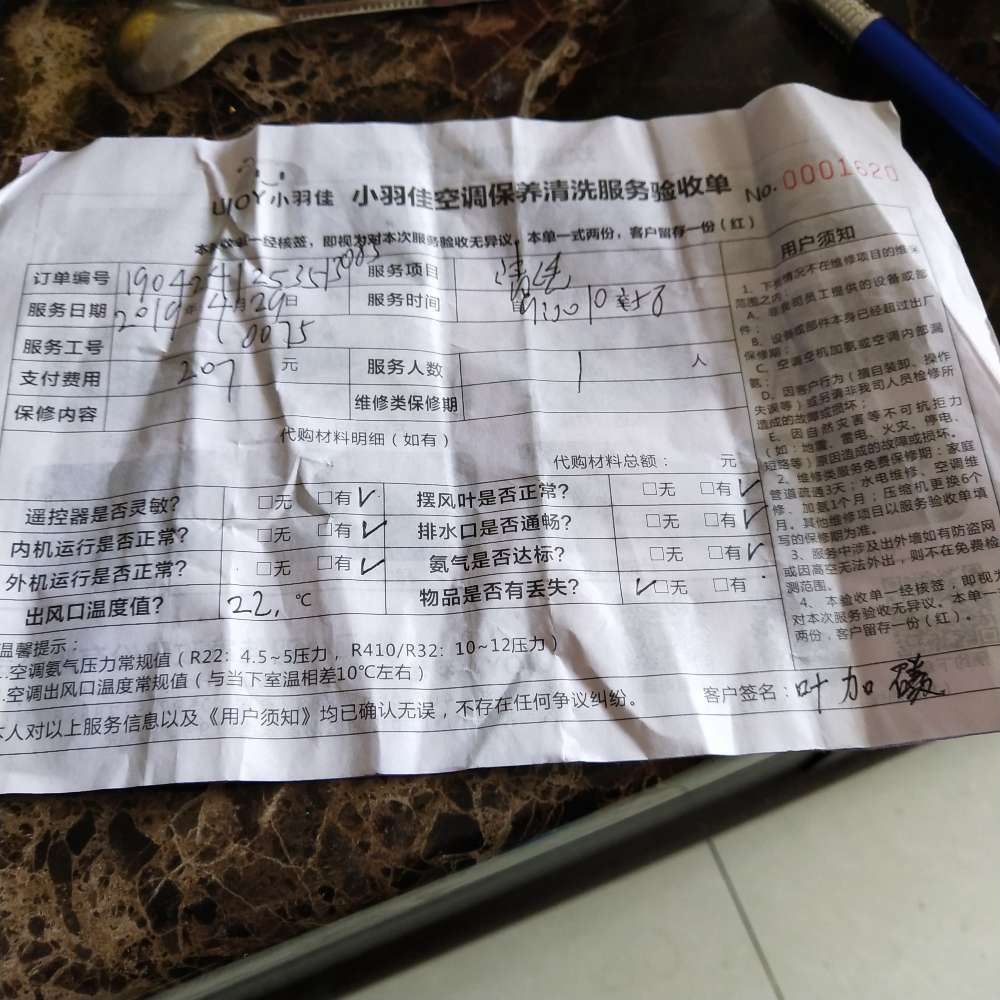 UJOY小羽佳 小羽佳空调保养清洗服务验收单 No. 0001620
本验收单一经核签，即视为对本次服务验收无异议。本单一式两份，客户留存一份（红）
订单编号 服务项目 清洗
服务日期 2019年4月29日 服务时间
服务工号 0075
支付费用 207 元 服务人数 1 人
保修内容 维修类保修期
代购材料明细（如有）
代购材料总额： 元
遥控器是否灵敏? □无 □有✓ 摆风叶是否正常? □无 □有✓
内机运行是否正常? □无 □有✓ 排水口是否通畅? □无 □有✓
外机运行是否正常? □无 □有✓ 氨气是否达标? □无 □有✓
出风口温度值? 22. ℃ 物品是否有丢失? ✓□无 □有
温馨提示：
.空调氨气压力常规值（R22：4.5~5压力，R410/R32：10~12压力）
.空调出风口温度常规值（与当下室温相差10℃左右）
本人对以上服务信息以及《用户须知》均已确认无误，不存在任何争议纠纷。
客户签名：叶加
用户须知
1、下列情况不在维修项目的维保
范围之内：
A、非我司员工提供的设备或部
件；
B、设备或部件本身已经超过出厂
保修期；
C、空调空机加氨或空调内部漏
氨；
D、因客户行为（擅自装卸、操作
失误等）或另请非我司人员检修所
造成的故障或损坏；
E、因自然灾害等不可抗拒力
（如：地震、雷电、火灾、停电、
短路等）原因造成的故障或损坏。
2、维修类服务免费保修期：家庭
管道疏通3天；水电维修、空调维
修、加氨1个月；压缩机更换6个
月。其他维修项目以服务验收单填
写的保修期为准。
3、服务中涉及出外墙如有防盗网
或因高空无法外出，则不在免费检
测范围。
4、本验收单一经核签，即视为
对本次服务验收无异议。本单一
两份，客户留存一份（红）。